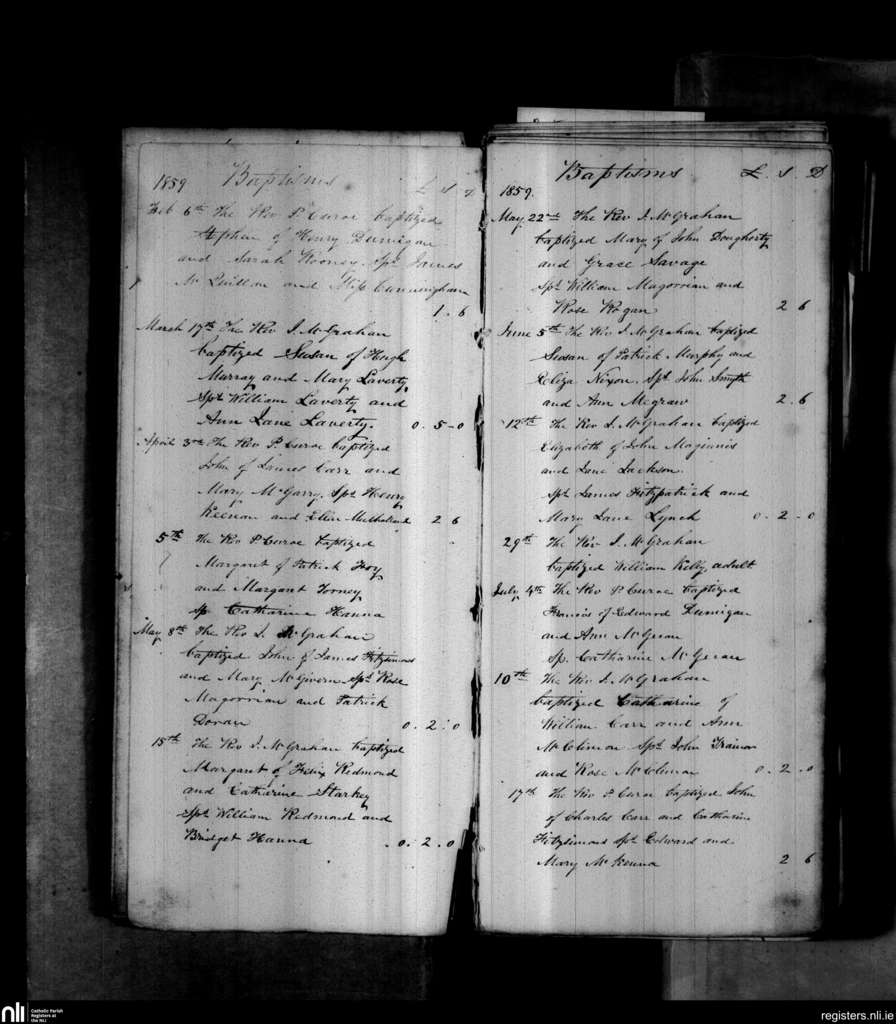 1859 Baptisms £ s d
Feb 6th The Rev P Curoe baptized
Stephen of Henry Dunnigan
and Sarah Rooney. Sps James
McQuillan and Miss Cunningham
1 - 6
March 17th The Rev J. McGrahan
baptized Susan of Hugh
Murray and Mary Laverty
Sps William Laverty and
Ann Jane Laverty. 0 - 5 - 0
April 3rd The Rev P. Curoe baptized
John of James Carr and
Mary McGarry. Sps Henry
Keenan and Ellen Mulholland 2 6
5th The Rev P Curoe baptized
Margaret of Patrick
and Margaret Torney
sp Catharine Hanna
May 8th The Rev J. McGrahan
baptized John of James Fitzsimons
and Mary McGivern Sps Rose
Magorrian and Patrick
Doran 0 - 2 - 0
15th The Rev J. McGrahan baptized
Margaret of Felix Redmond
and Catharine Starkey
Sps William Redmond and
Bridget Hanna 0 - 2 - 0
Baptisms £ . S . D
1859.
May 22nd The Rev J. McGrahan
baptized Mary of John Dougherty
and Grace Savage
Sps William Magorrian and
Rose Rogan 2 6
June 5th The Rev J. McGrahan baptized
Susan of Patrick Murphy and
Eliza Nixon. Sps John Smyth
and Ann Megraw 2 - 6
12th The Rev J. McGrahan baptized
Elizabeth of John Maginnis
and Jane Jackson.
Sps James Fitzpatrick and
Mary Jane Lynch 0 - 2 - 0
29th The Rev J. McGrahan
baptized William Kelly, adult
July 4th The Rev P Curoe baptized
Francis of Edward Dunnigan
and Ann McGeran
Sp. Catharine McGeran
10th The Rev J. McGrahan
baptized Catharine of
William Carr and Ann
McClimon Sps John Trainor
and Rose McClimon 0 - 2 - 0
17th The Rev P Curoe baptized John
of Charles Carr and Catharine
Fitzsimons sps Edward and
Mary McKenna 2 6
nli Catholic Parish
Registers at
the NLI
registers.nli.ie